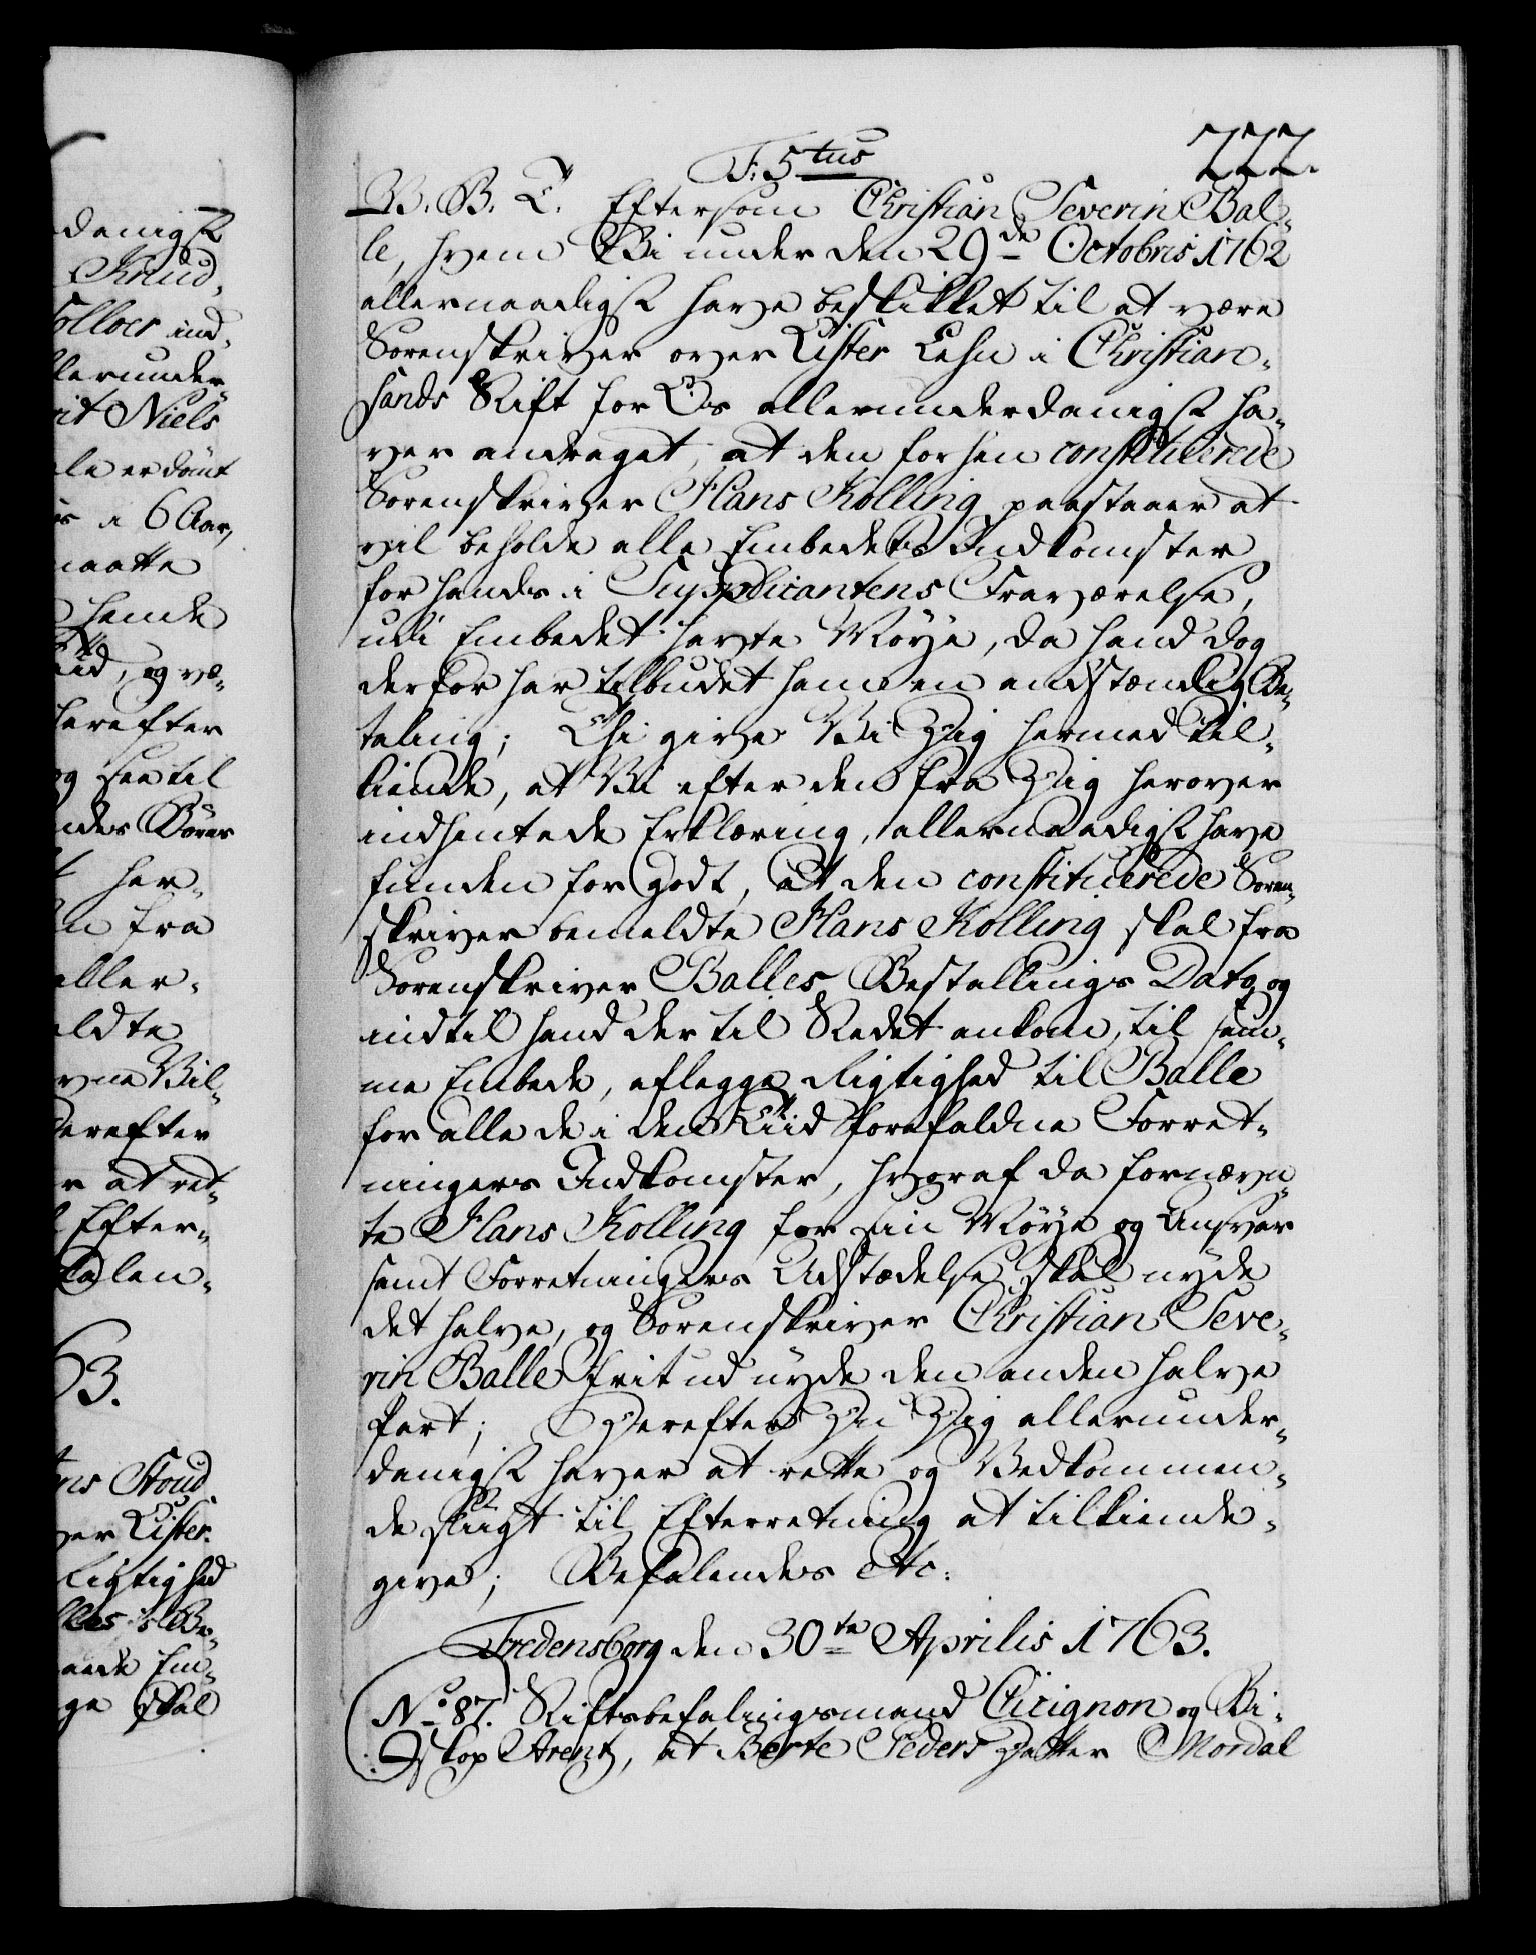 F: 5tus
222.
V. B. T. Eftersom Christian Severin Bal-
le, hvem Vi under den 29de Octobris 1762
allernaadigst have beskikket til at være
Sorenskriver over Lister Lehn i Christian-
sands Stift for Os allerunderdanigst ha-
ver andraget, at den forhen constituerede
Sorenskriver Hans Kolling paastaaer at
vil beholde alle Embedets Indkomster
for hands i Supplicantens Fraværelse,
udi Embedet havte Møye, da hand dog
derfor har tilbudet ham en anstændig Be-
taling; Thi give Vi Dig hermed til-
kiende, at Vi efter den fra Dig herover
indhentede Erklæring, allernaadigst have
funden for godt, at den constituerede Soren-
skriver bemeldte Hans Kolling skal fra
Sorenskriver Balles Bestallings Dato og
indtil hand der til Stedet ankom, til sam-
me Embede, aflegge Rigtighed til Balle
for alle de i den Tiid forefaldne Forret-
ningers Indkomster, hvoraf da fornævn-
te Hans Kolling for sin Møye og Ansvar
samt Forretningers Udstædelse skal nyde
det halve, og Sorenskriver Christian Seve-
rin Balle frit ud nyde den anden halve
Part; Derefter Du Dig allerunder-
danigst haver at rette og Vedkommen-
de sligt til Efterretning at tilkiende-
give; Befalendes etc:
Fredensborg den 30te Aprilis 1763.
No 87. Stiftsbefalingsmand Cicignon og Bi-
skop Arentz, at Berte Peders Datter Mordal
danigst
Knud,
ind,
Niels
er dømt
i 6 Aar,
maatte
hende
og væ-
herefter
og see til
her-
fra
aller-
Vil-
derefter
at ret-
Efter-
63.
Stoud
Lister.
Rigtighed
Be-
Em-
skal